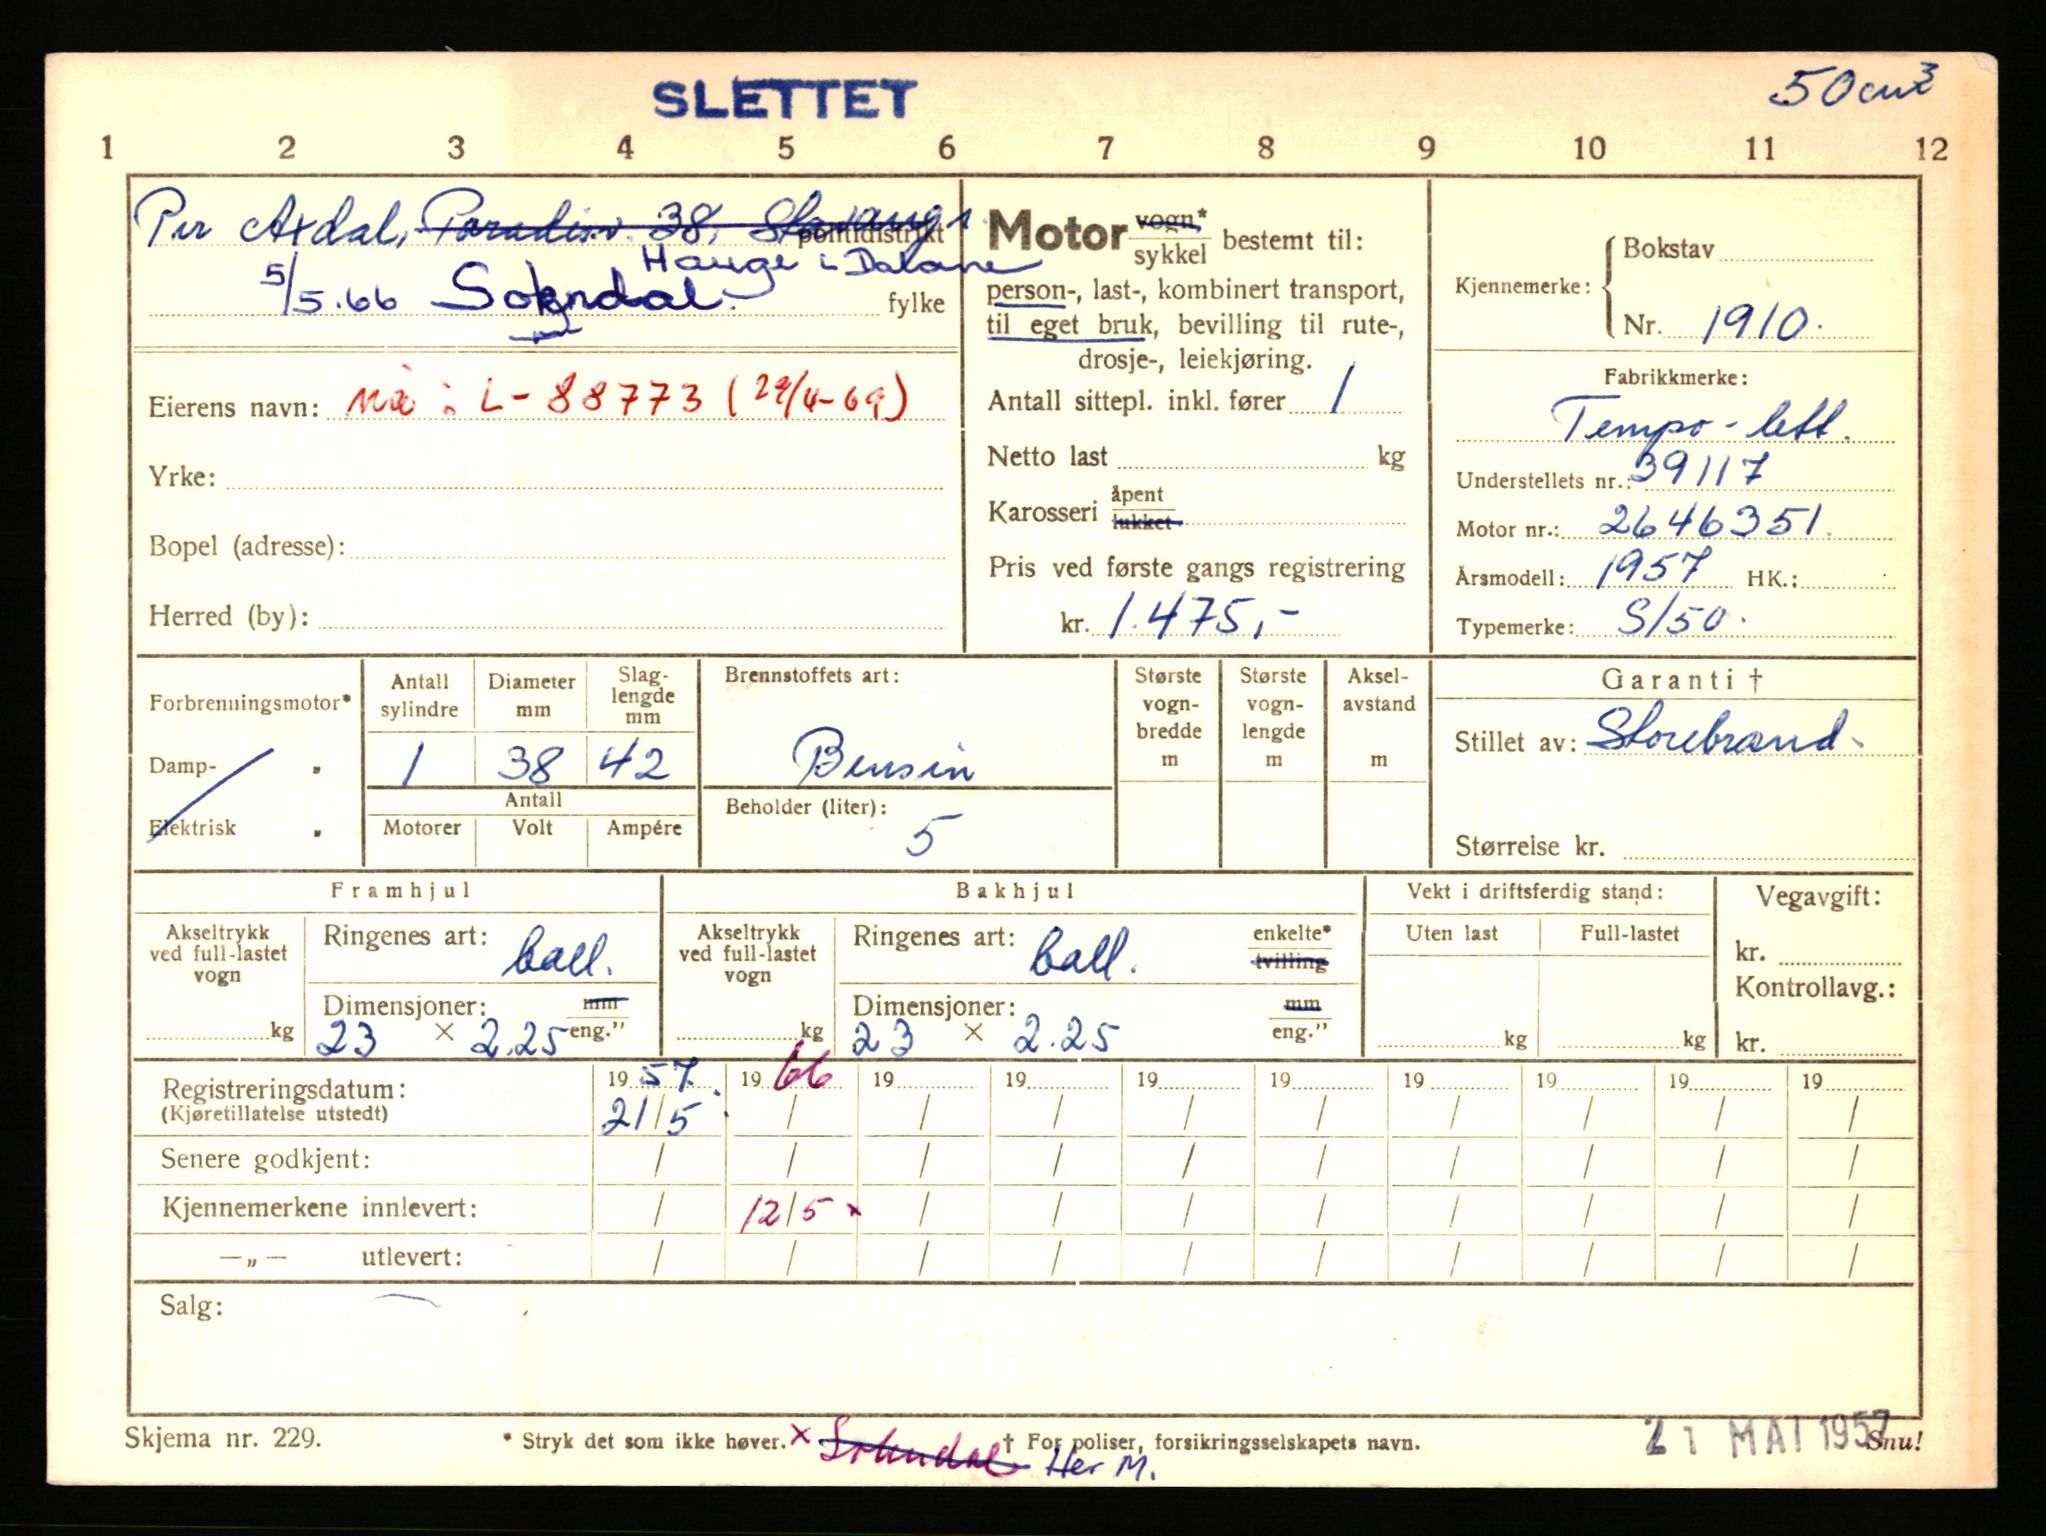 SLETTET
50 cm3
1 2 3 4 5 6 7 8 9 10 11 12
Per Axdal, Paradisv. 38, Stavanger
politidistrikt
Hauge i Dalane
5/5.66 Sokndal.
fylke
Eierens navn: nå: L-88773 (29/4-69)
Yrke:
Bopel (adresse):
Herred (by):
Motor vogn,* sykkel bestemt til:
person-, last-, kombinert transport,
til eget bruk, bevilling til rute-,
drosje-, leiekjøring.
Antall sittepl. inkl. fører 1
Netto last kg
Karosseri åpent lukket
Pris ved første gangs registrering
kr. 1.475,-
Kjennemerke: Bokstav
Nr. 1910.
Fabrikkmerke:
Tempo-lett.
Understellets nr.: 39117
Motor nr.: 2646351.
Årsmodell: 1957 HK.:
Typemerke: S/50.
Forbrenningsmotor*
Damp- „
Elektrisk „
Antall sylindre
Diameter mm
Slag-lengde mm
1 38 42
Antall
Motorer Volt Ampére
Brennstoffets art:
Bensin
Beholder (liter):
5
Største vogn-bredde m
Største vogn-lengde m
Aksel-avstand m
Garanti †
Stillet av: Storebrand.
Størrelse kr.
Framhjul
Akseltrykk ved full-lastet vogn
kg
Ringenes art: ball.
Dimensjoner: mm eng."
23 × 2.25
Bakhjul
Akseltrykk ved full-lastet vogn
kg
Ringenes art: ball. enkelte* tvilling
Dimensjoner: mm eng."
23 × 2.25
Vekt i driftsferdig stand:
Uten last Full-lastet
kg kg
Vegavgift:
kr.
Kontrollavg.:
kr.
Registreringsdatum: 1957. 1966 19 19 19 19 19 19 19 19
(Kjøretillatelse utstedt) 21/5 / / / / / / / / /
Senere godkjent: / / / / / / / / / /
Kjennemerkene innlevert: / 12/5 x / / / / / / / /
—„— utlevert: / / / / / / / / / /
Salg:
Skjema nr. 229.
* Stryk det som ikke høver.
x Sokndal Her M.
† For poliser, forsikringsselskapets navn.
21 MAI 1957
Snu!